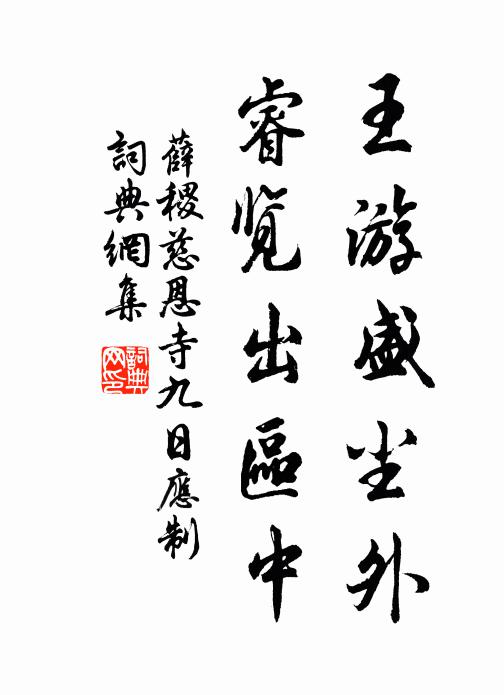 王游盛尘外
睿览出區中
薛稷慈恩寺九日應制
詞典網集
詞典网印